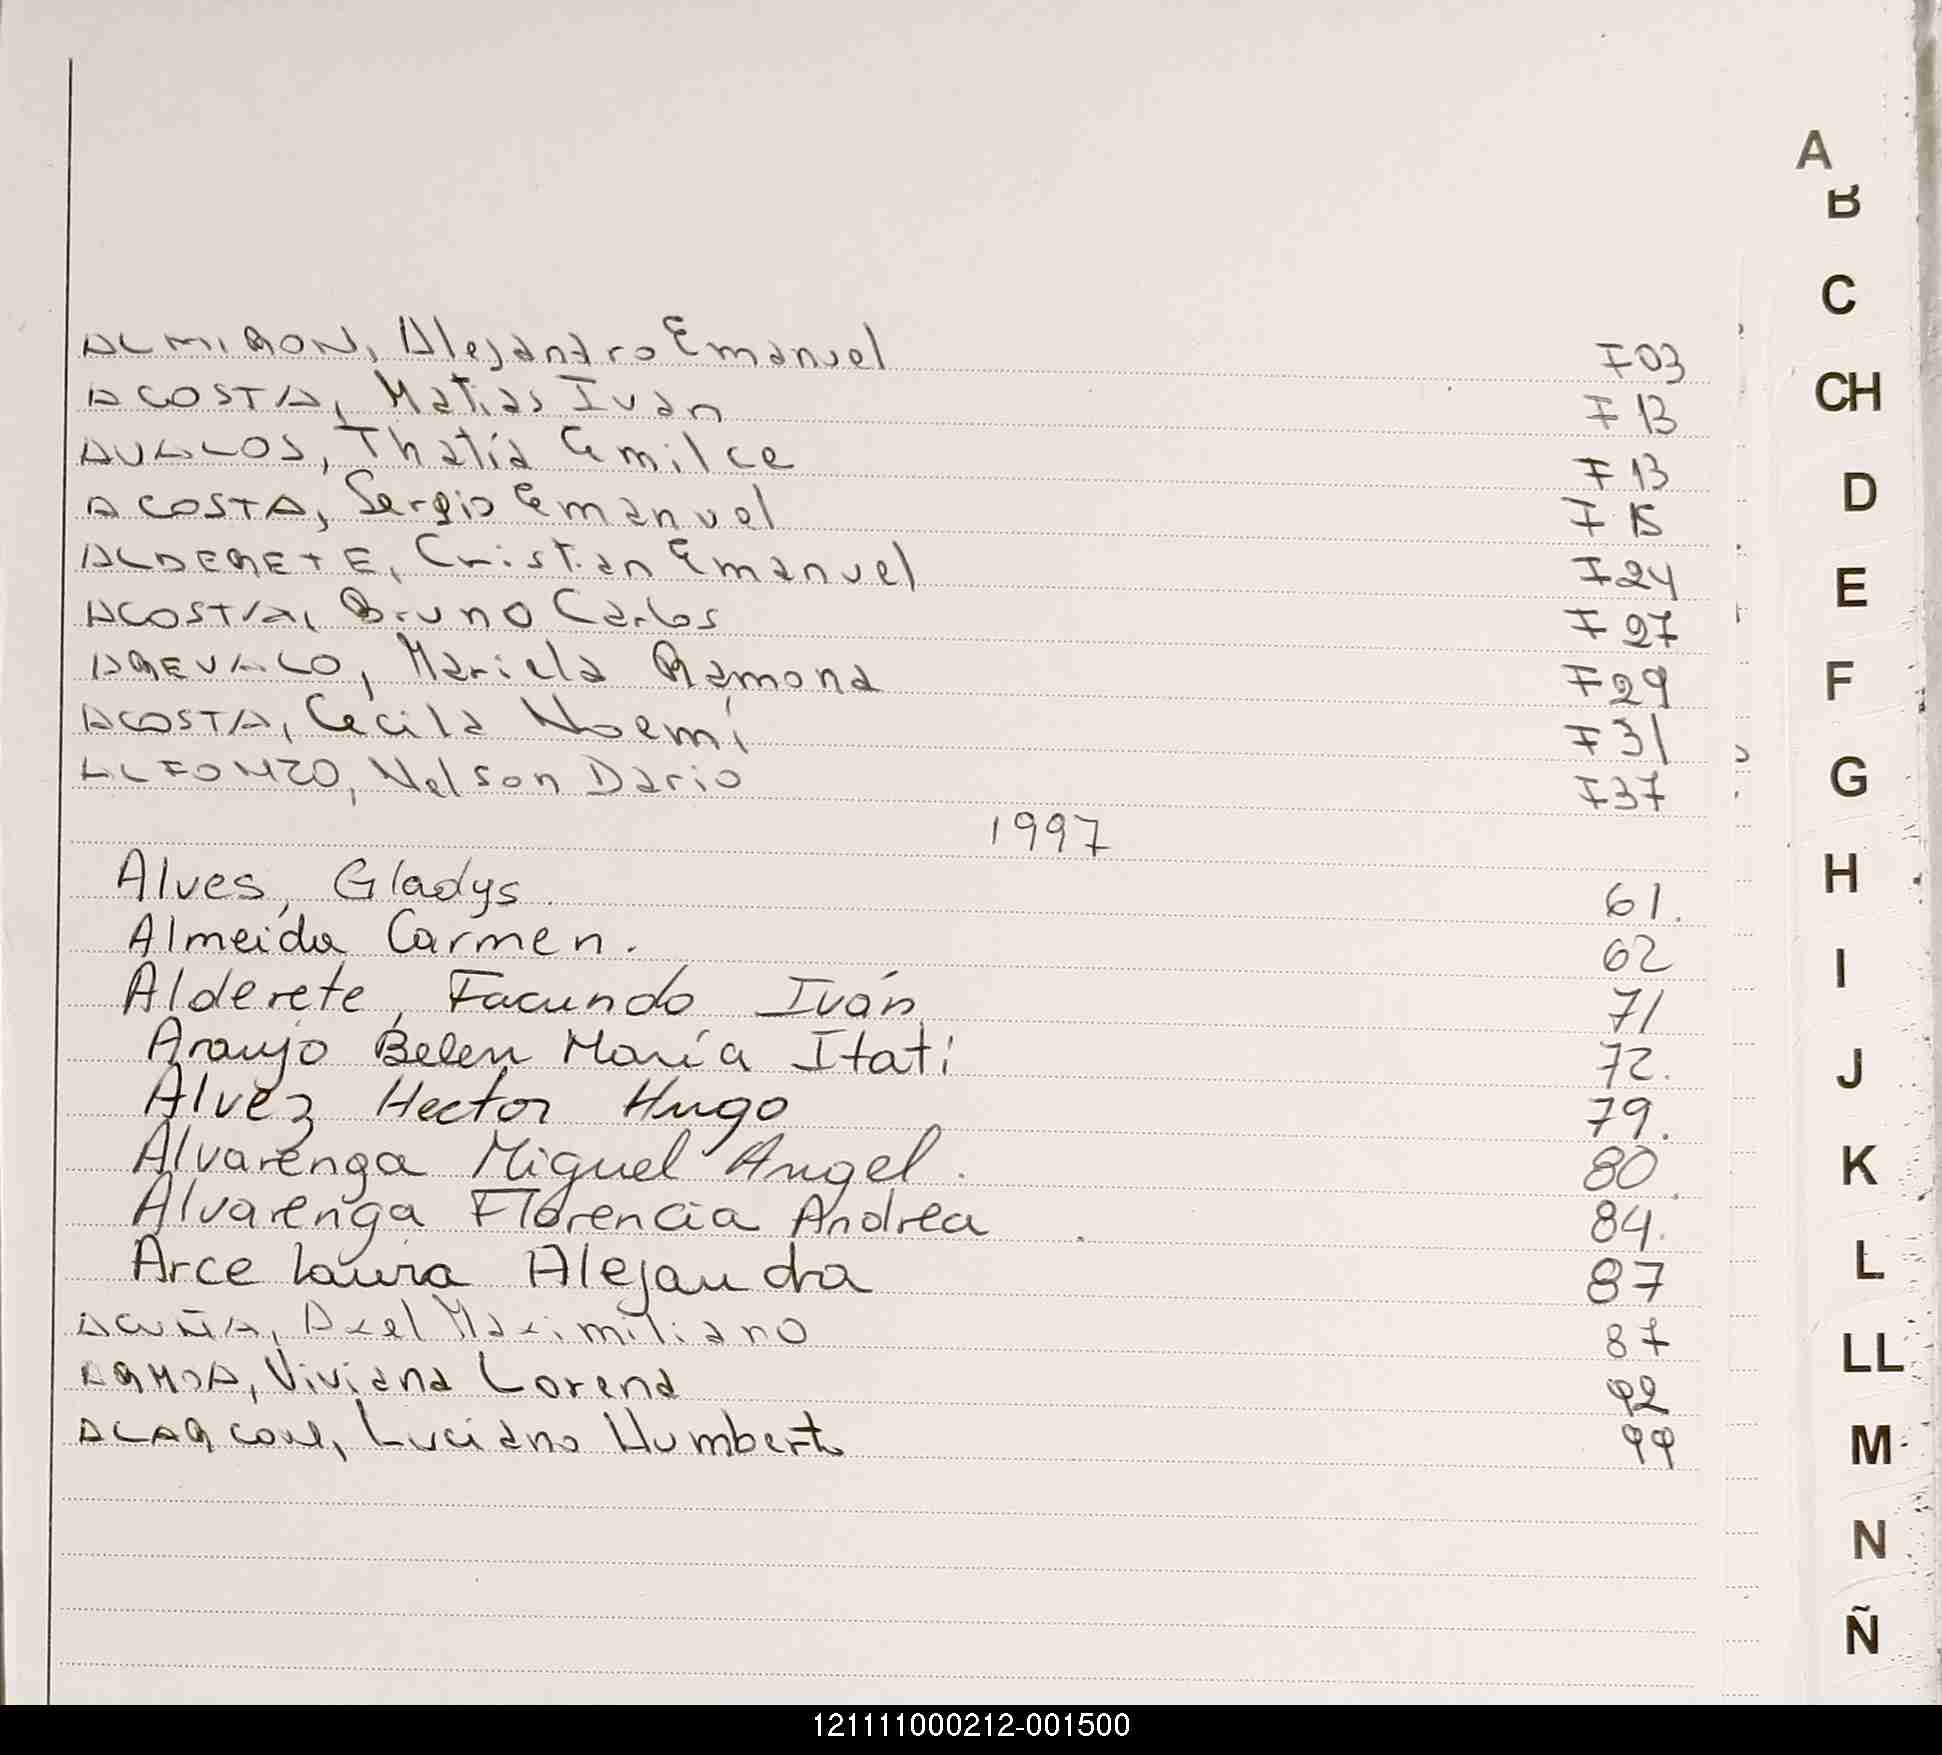 ALMIRON, Alejandro Emanuel F03
ACOSTA, Matias Ivan F13
AVALOS, Thatía Emilce F13
ACOSTA, Sergio Emanuel F15
ALDERETE, Cristian Emanuel F24
ACOSTA, Bruno Carlos F27
AREVALO, Mariela Ramona F29
ACOSTA, Cecila Noemí F31
ALFONZO, Nelson Dario F37
1997
Alves, Gladys 61.
Almeida Carmen. 62
Alderete, Facundo Iván 71
Araujo Belen María Itatí 72.
Alvez Hector Hugo 79.
Alvarenga Miguel Angel. 80.
Alvarenga Florencia Andrea. 84.
Arce Laura Alejandra 87
ACUÑA, Axel Maximiliano 87
ARMOA, Viviana Lorena 92
ALARCON, Luciano Humberto 99
A
B
C
CH
D
E
F
G
H
I
J
K
L
LL
M
N
Ñ
121111000212-001500